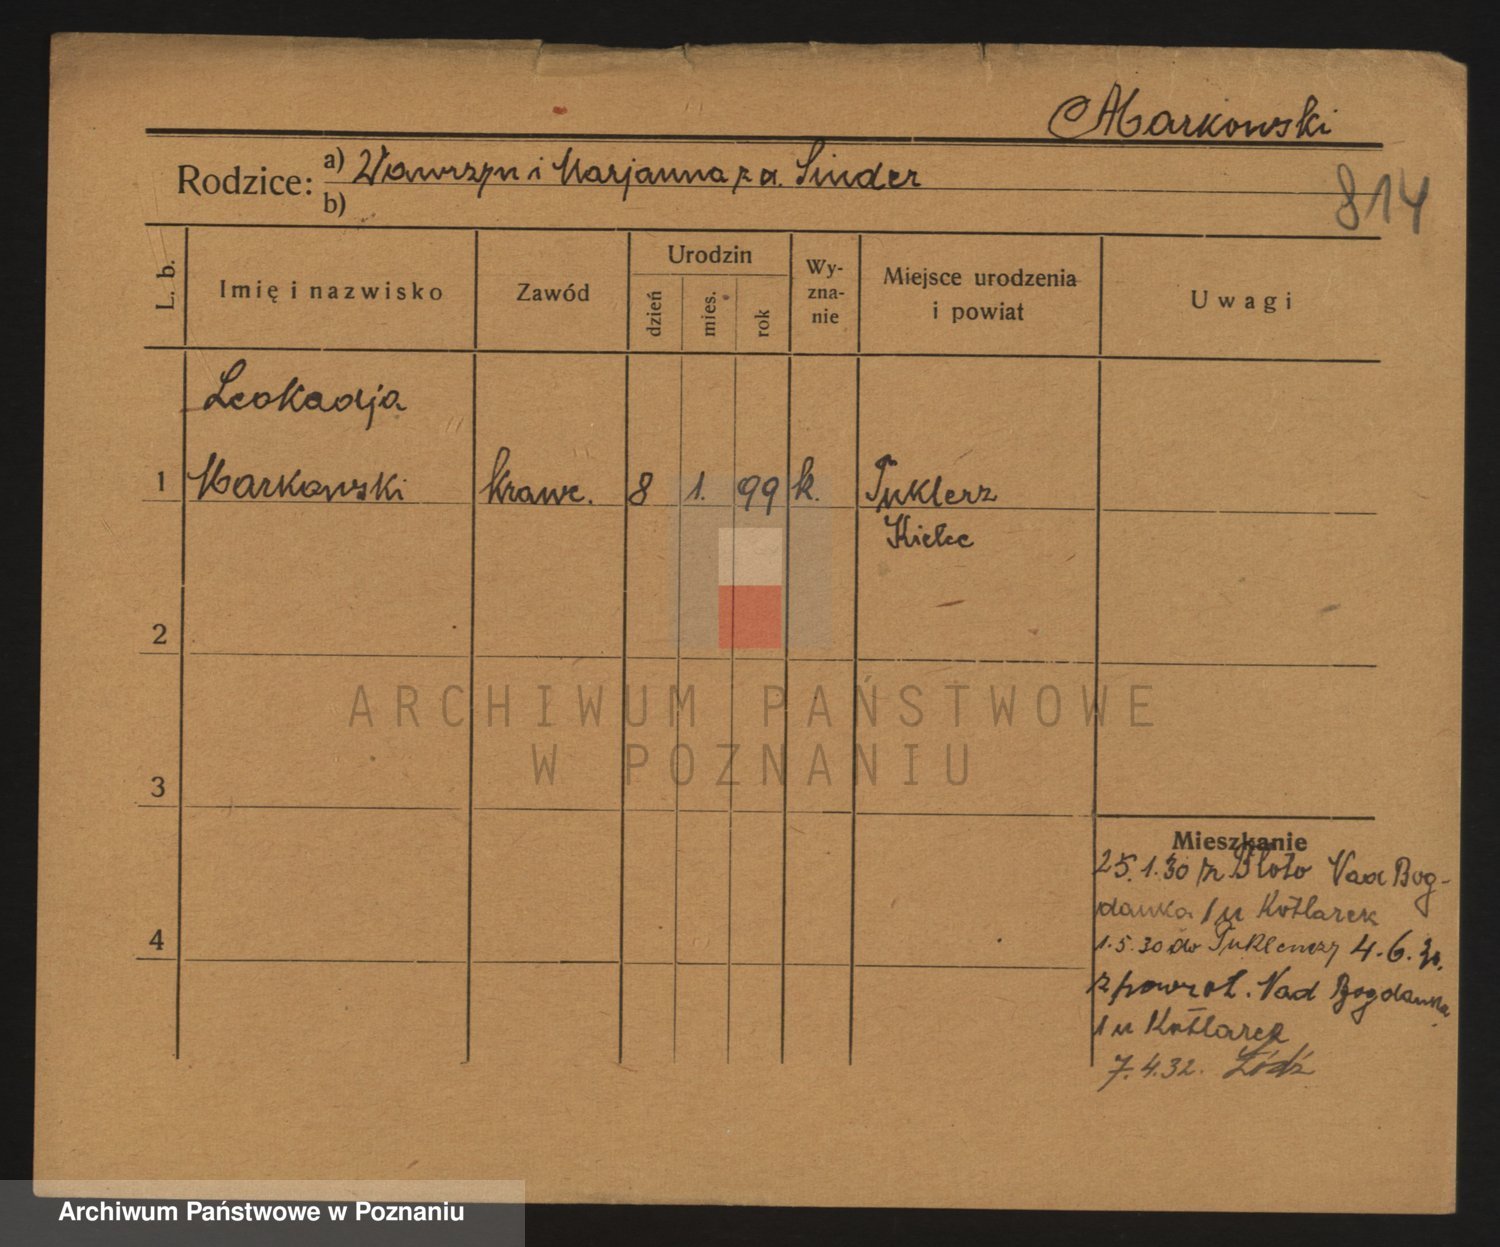 Markowski
814
Rodzice: a) Wawrzyn i Marjanna z d. Sinder
b)
L. b.
Imię i nazwisko
Zawód
Urodzin
dzień
mies.
rok
Wy-
zna-
nie
Miejsce urodzenia
i powiat
Uwagi
Leokadja
1 Markowski krawc. 8 1. 99 k. Tuklerz
Kielce
2
3
4
Mieszkanie
25.1.30 z Błoto Nad Bog-
danka 1 u Kotlarek
1.5.30 do 4.6.30.
z powrot. Nad Bogdanka
1 u Kotlarek
7.4.32. Łódź
ARCHIWUM PAŃSTWOWE
W POZNANIU
Archiwum Państwowe w Poznaniu